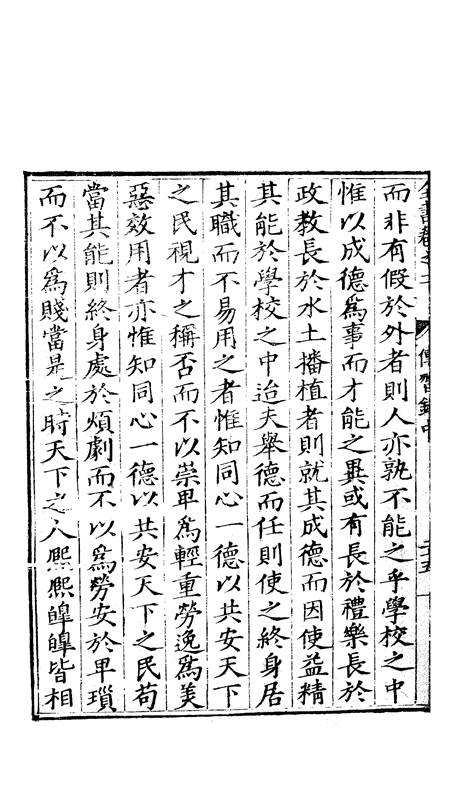 全書卷之二 傳習錄中 二五
而非有假於外者則人亦孰不能之乎學校之中
惟以成德爲事而才能之異或有長於禮樂長於
政教長於水土播植者則就其成德而因使益精
其能於學校之中迨夫舉德而任則使之終身居
其職而不易用之者惟知同心一德以共安天下
之民視才之稱否而不以崇卑爲輕重勞逸爲美
惡效用者亦惟知同心一德以共安天下之民苟
當其能則終身處於煩劇而不以爲勞安於卑瑣
而不以爲賤當是之時天下之人熙熙皥皥皆相